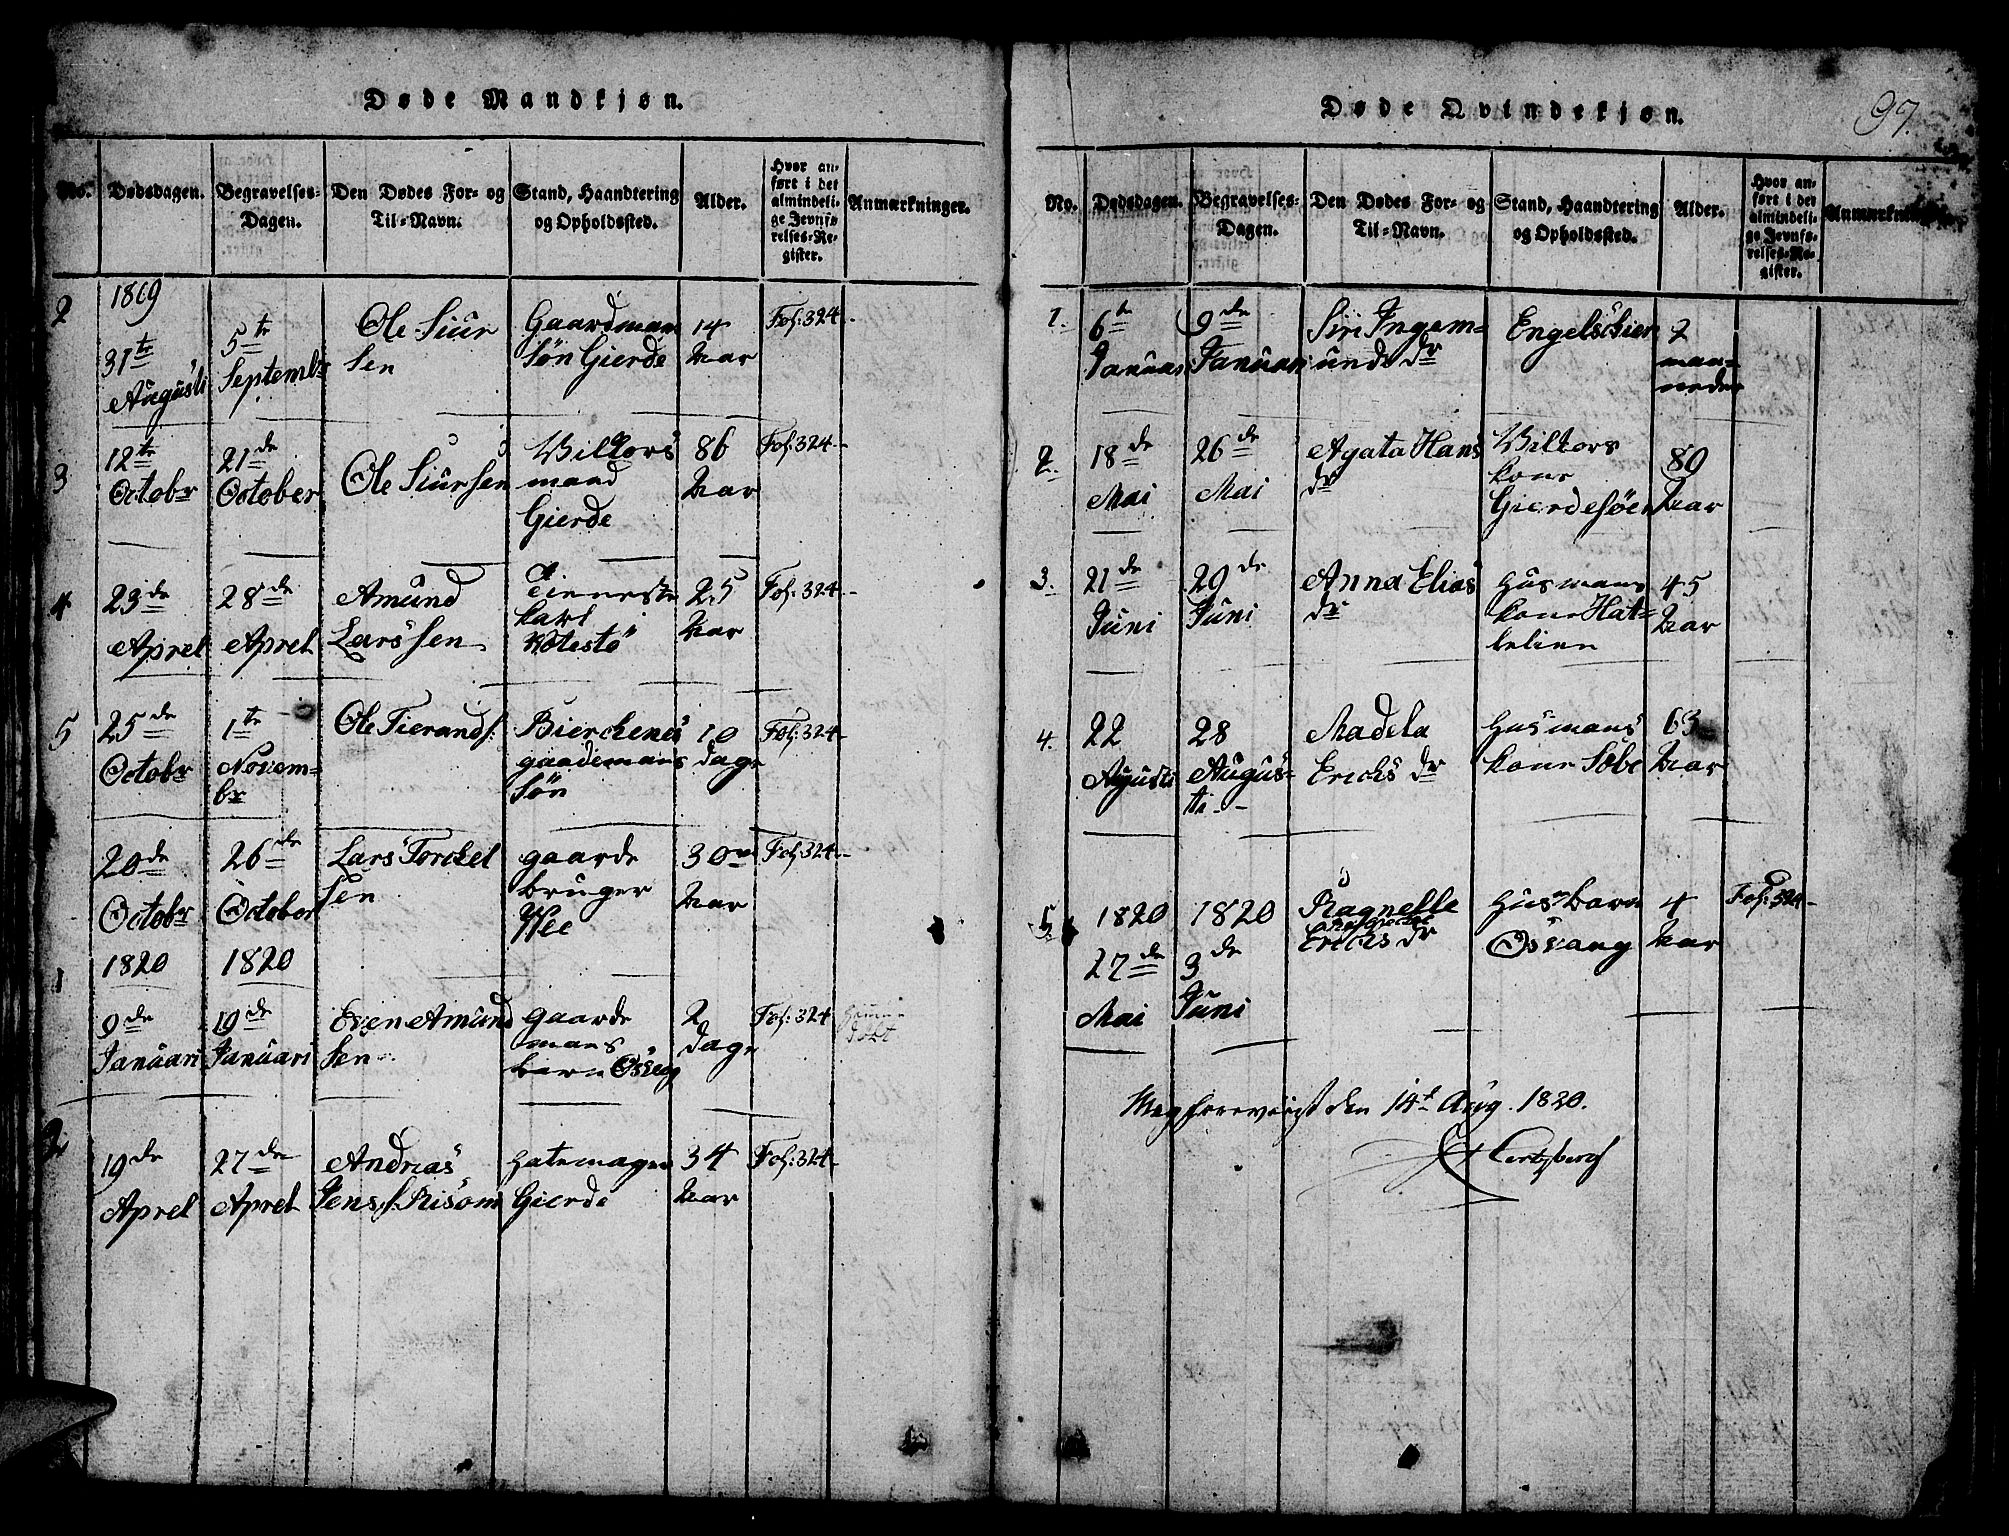 Døde Mandkjøn.
No. Dødsdagen. Begravelses-Dagen. Den Dødes For- og Til-Navn. Stand, Haandtering og Opholdssted. Alder. Hvor anført i det almindelige Jevnførelses-Register. Anmærkninger.
1819
2 31te Augusti 5te Septembr Ole Siursen Gaardmans søn Gierde 14 Aar Fol: 324-
3 12te Octobr 21de October Ole Siursen Vilkors mand Gierde 86 Aar Fol: 324-
4 23de Aprel 28de Aprel Amund Larssen Tieneste karl 25 Aar Fol: 324-
5 25de Octobr 1te Novembr Ole Tierands: Bierchenes gaardemans søn 10 dage Fol: 324-
20de Octobr 26de October Lars Torckelsen gaardebruger Wee 30 Aar Fol: 324-
1820 1820
1 9de Januari 19de Januari Even Amundsen gaardemans barn 2 dage Fol: 324 hiemedøbt
2 19de Aprel 27de Aprel Andrias Jens s. Risom Hatemager Gierde 34 Aar Fol: 324-
Døde Qvindekjøn. 97.
No. Dødsdagen. Begravelses-Dagen. Den Dødes For- og Til-Navn. Stand, Haandtering og Opholdssted. Alder. Hvor anført i det almindelige Jevnførelses-Register. Anmærkninger.
1. 6te Januari 9de Januari Siri Ingemunds dr Engelschien 2 maaneder
2. 18de Mai 26de Mai Agata Hans dr Vilkors kone Gierdesøen 89 Aar
3. 21de Juni 29de Juni Anna Elias dr Husmans kone Hattelien 45 Aar
4. 22 Agusti 28 Augusti - Madela Erichs dr Husmans kone Søbe 63 Aar
5. 1820 27de Mai 1820 3de Juni Ragnelle Erichs dr Husbarn Osvang 4 Aar Fol: 324-
den 14de Aug. 1820.
Hertzberg